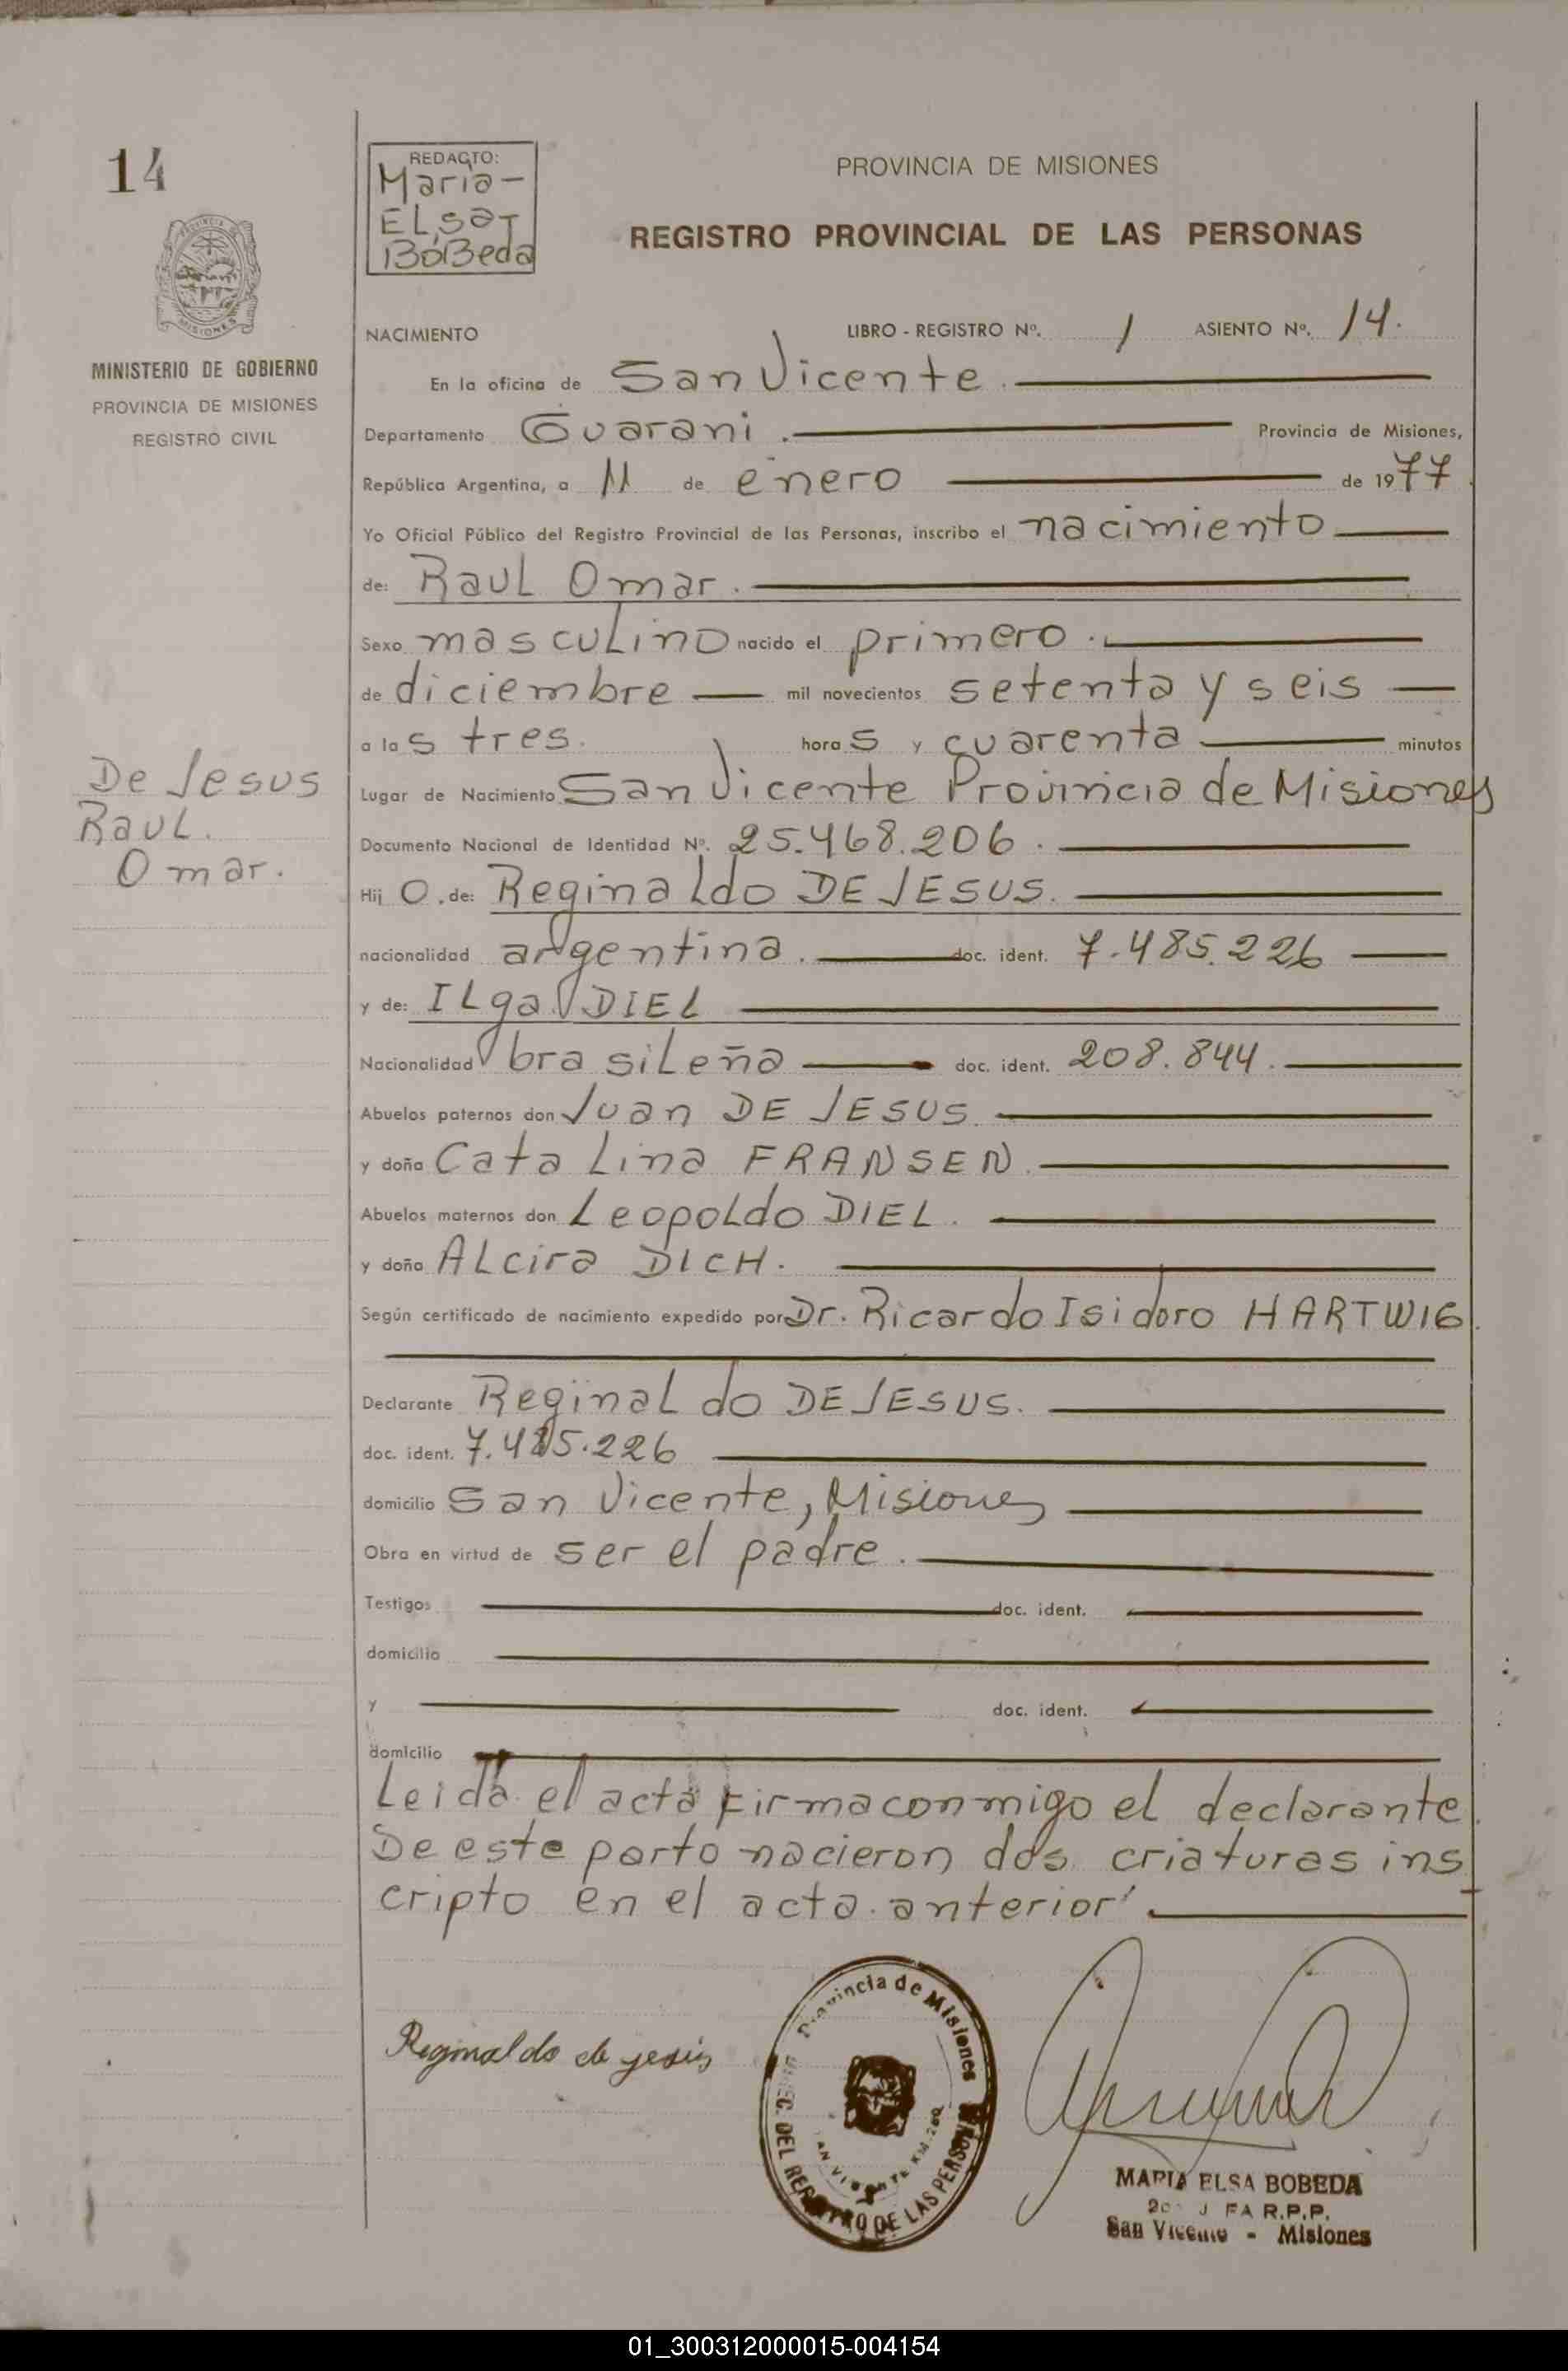 14
REDACTO:
Maria-
ELsa-
BóBeda
PROVINCIA DE MISIONES
REGISTRO PROVINCIAL DE LAS PERSONAS
MINISTERIO DE GOBIERNO
PROVINCIA DE MISIONES
REGISTRO CIVIL
NACIMIENTO LIBRO - REGISTRO Nº. 1 ASIENTO Nº. 14.
En la oficina de San Vicente.
Departamento Guarani. Provincia de Misiones,
República Argentina, a 11 de enero de 1977
Yo Oficial Público del Registro Provincial de las Personas, inscribo el nacimiento
de: Raul Omar.
Sexo masculino nacido el primero.
de diciembre mil novecientos setenta y seis
a las tres. horas y cuarenta minutos
De Jesus
Raul.
Omar.
Lugar de Nacimiento San Vicente Provincia de Misiones
Documento Nacional de Identidad Nº. 25.468.206.
Hijo. de: Reginaldo DE JESUS.
nacionalidad argentina. doc. ident. 7.485.226
y de: ILga DIEL
Nacionalidad brasileña doc. ident. 208.844.
Abuelos paternos don Juan DE JESUS
y doña Catalina FRANSEN.
Abuelos maternos don Leopoldo DIEL.
y doña ALcira DICH.
Según certificado de nacimiento expedido por Dr. Ricardo Isidoro HARTWIG.
Declarante Reginaldo DE JESUS.
doc. ident. 7.485.226
domicilio San Vicente, Misiones
Obra en virtud de ser el padre.
Testigos doc. ident.
domicilio
y doc. ident.
domicilio
Leida el acta firma conmigo el declarante.
De este parto nacieron dos criaturas ins
cripto en el acta anterior.
Reginaldo de jesús
Provincia de Misiones
DIREC. DEL REGISTRO DE LAS PERSONAS
SAN VICENTE KM.
MARIA ELSA BOBEDA
R.P.P.
San Vicente - Misiones
01_300312000015-004154